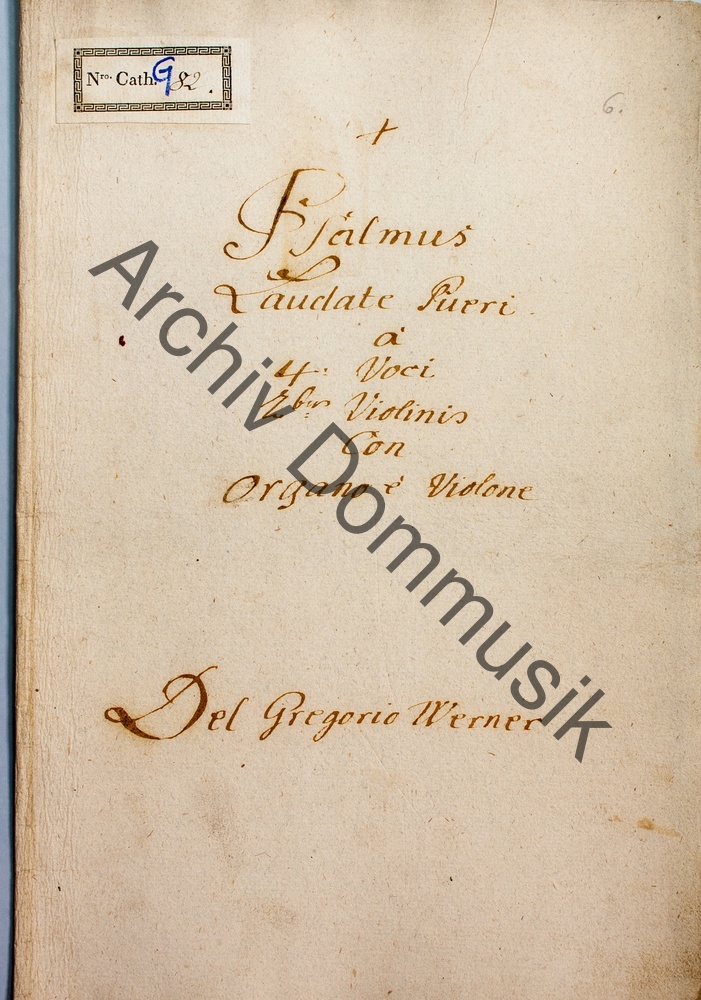 Nro. Cath. G 82.
6.
+
Psalmus
Laudate Pueri
à
4: Voci
2bus Violinis
Con
Organo è Violone
Del Gregorio Werner
Archiv Dommusik